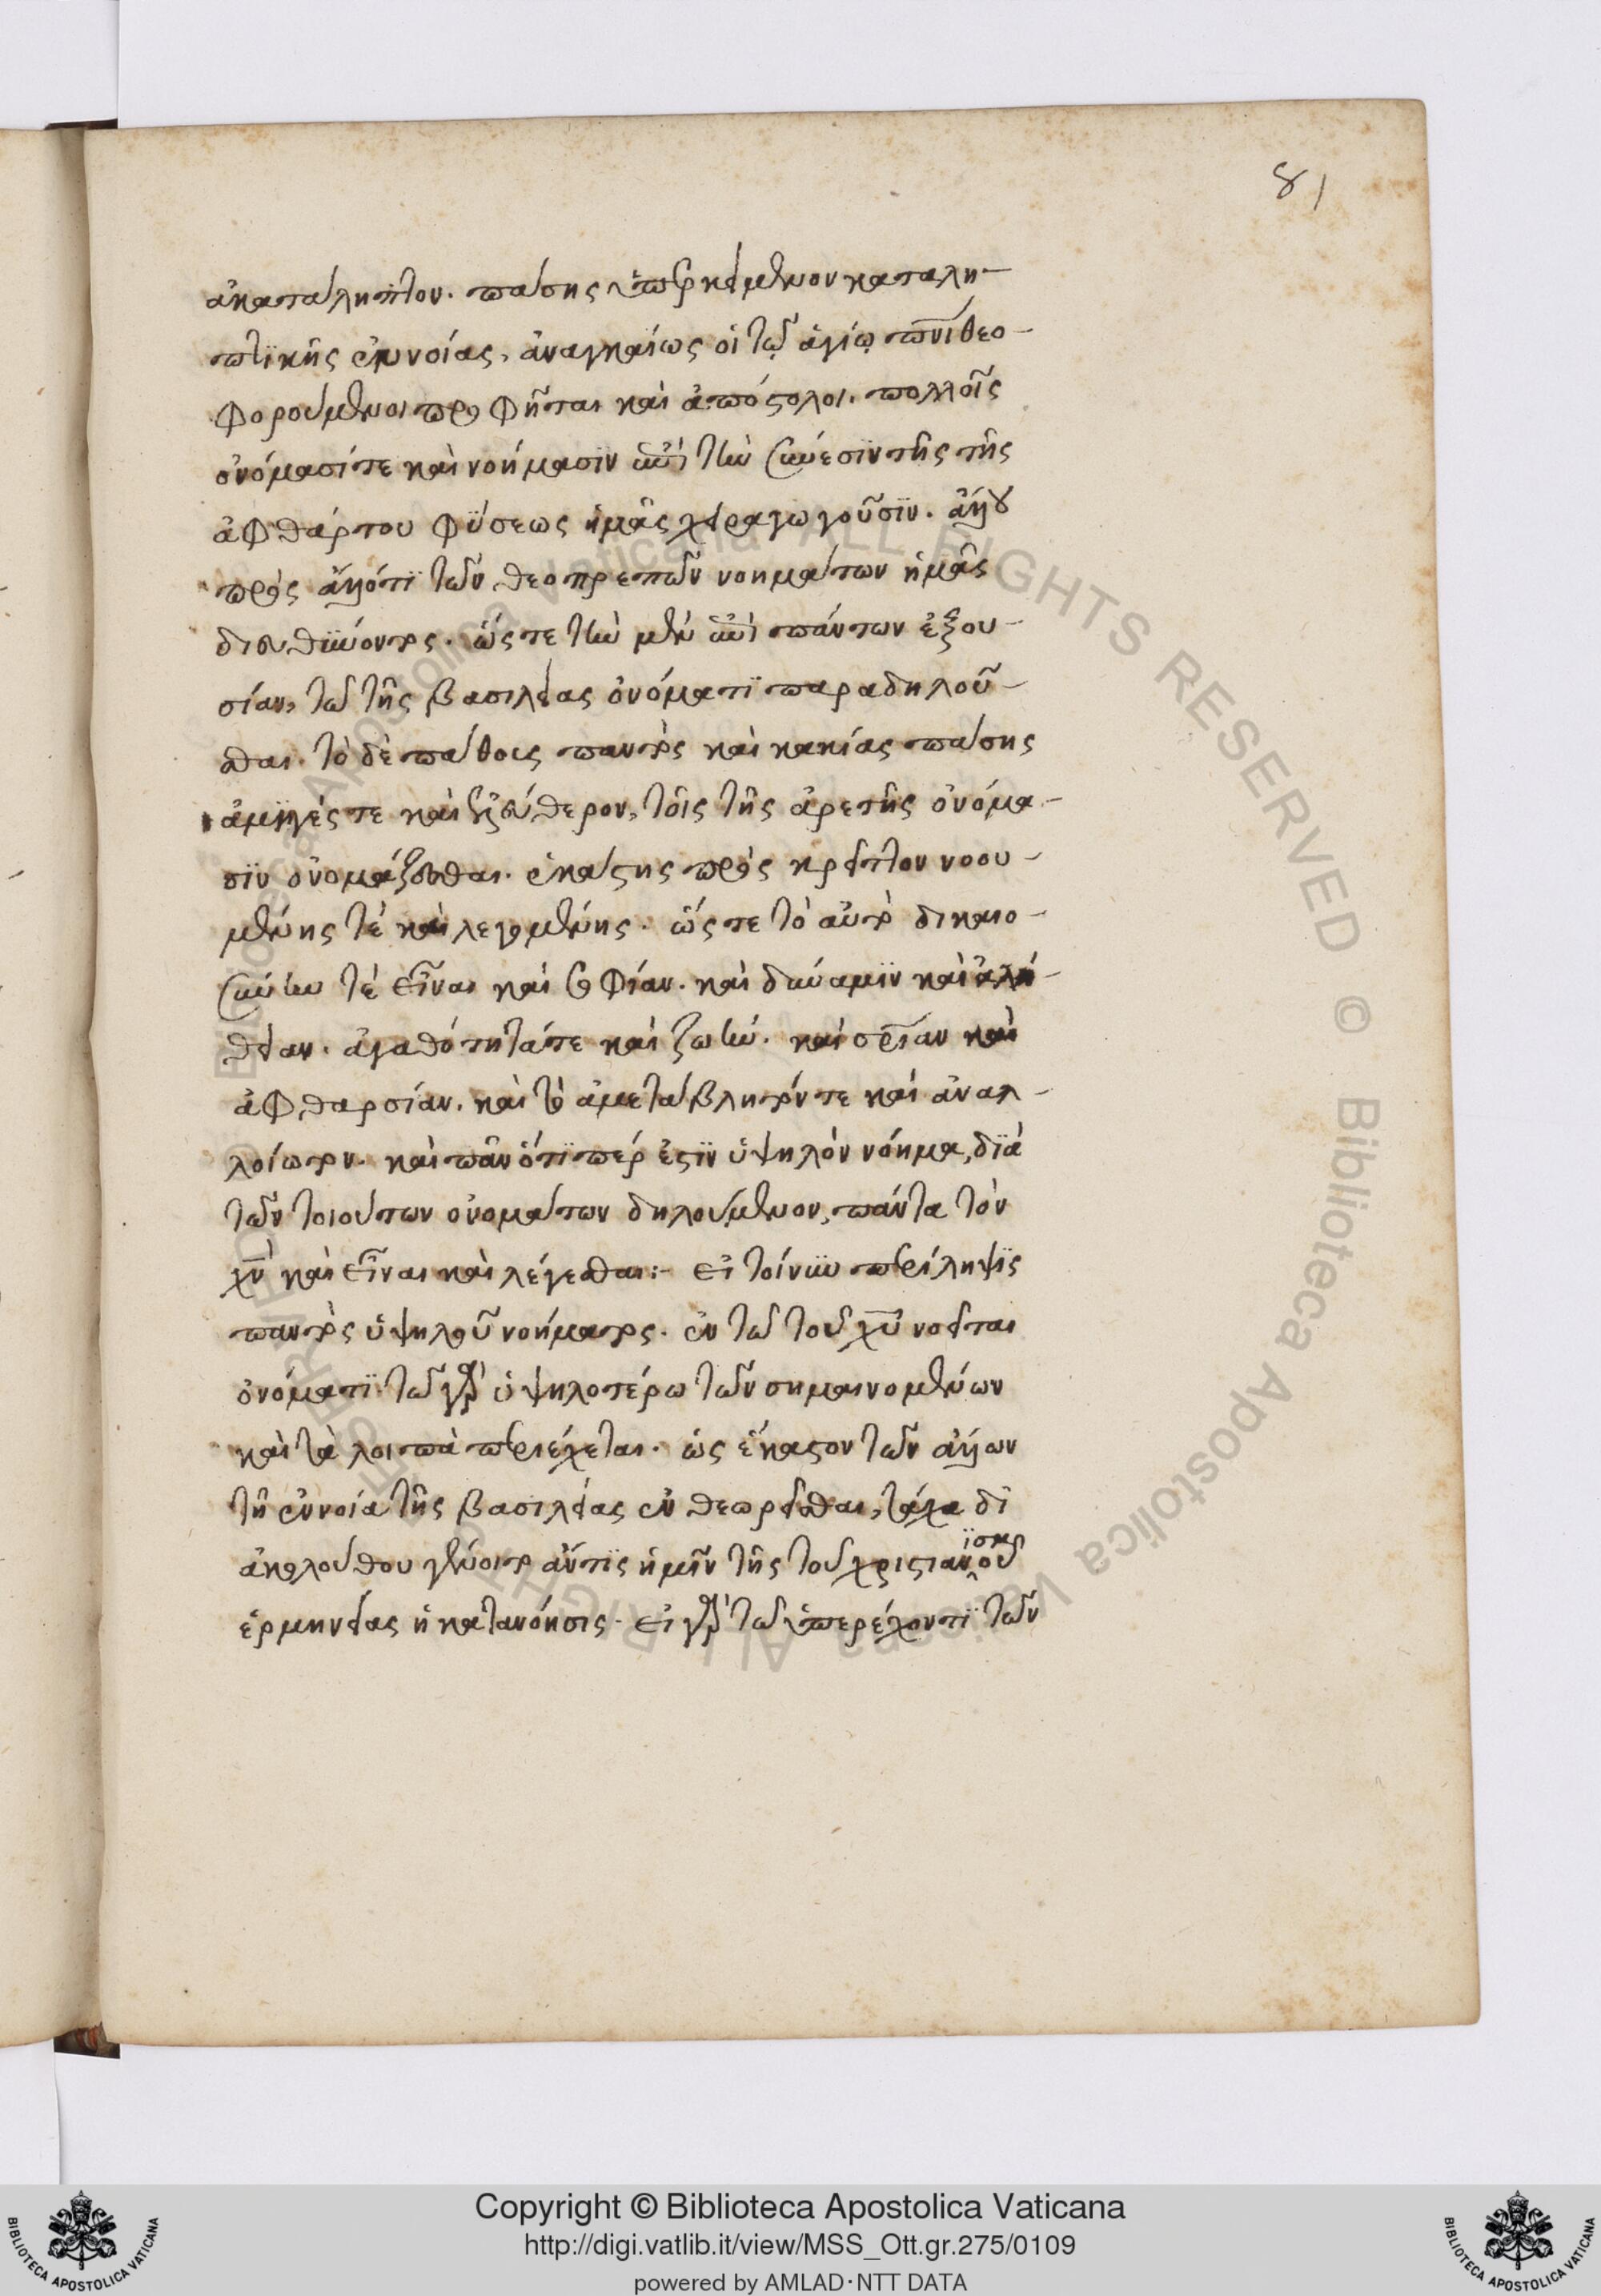 81
ἀκατάληπτον. πάσης ὑπερκείμενον καταλη-
πτϊκῆς ἐπινοίας, ἀναγκαίως οἱ τῷ ἁγίῳ πνι θεο-
φορούμενοι προφῆται καὶ ἀπόστολοι. πολλοῖς
ὀνόμασί τε καὶ νοήμασϊν ἐπὶ τὴν σύνεσϊν τῆς τῆς
ἀφθάρτου φΰσεως ἡμᾶς χειραγωγοῦσϊν. ἄλλου
πρὸς ἄλλό τϊ τῶν θεοπρεπῶν νοημάτων ἡμᾶς
διευθΰνοντος. ὥς τε τὴν μὲν ἐπὶ πάντων ἐξου-
σίαν, τῶ τῆς βασιλείας ὀνόματϊ παραδηλοῦ-
σθαι. τὸ δὲ πάθους παντὸς καὶ κακίας πάσης
ἀμϊγές τε καὶ ἐλεύθερον, τοῖς τῆς ἀρετῆς ὀνόμα-
σϊν ὀνομάζεσθαι. ἑκάστης πρὸς κρεῖττον νοου-
μένης τὲ καὶ λεγομένης. ὥς τε τὸ αὐτὸ δικαιο-
σύνην τὲ εἶναι καὶ σοφίαν. καὶ δύναμϊν καὶ ἀλή-
θειαν. ἀγαθότητά τε καὶ ζωήν. καὶ σρίαν καὶ
ἀφθαρσίαν. καὶ τὸ ἀμετάβλητόν τε καὶ ἀναλ-
λοίωτον. καὶ πᾶν ὅτϊ πέρ ἐστϊν ὑψηλὸν νόημα, δϊὰ
τῶν τοιούτων ὀνομάτων δηλούμενον, πάντα τὸν
χν καὶ εἶναι καὶ λέγεσθαι:- εἰ τοίνϋν περίληψϊς
παντὸς ὑψηλοῦ νοήματος. ἐν τῶ τοῦ χυ νοεῖται
ὀνόματϊ. τῶ γὰρ ὑψηλοτέρω τῶν σημαινομένων
καὶ τὰ λοιπὰ περιέχεται. ὡς ἕκαστον τῶν ἄλλων
τῆ ἐννοία τῆς βασιλείας ἐν θεωρεῖσθαι, τάχα δϊ
ἀκολούθου γένοιτο ἄντϊς ἡμῖν τῆς τοῦ χριστιανϊσμοῦ
ἑρμηνείας ἡ κατανόησις. εἰ γὰρ τῶ ὑπερέχοντϊ τῶν
Copyright © Biblioteca Apostolica Vaticana
http://digi.vatlib.it/view/MSS_Ott.gr.275/0109
powered by AMLAD·NTT DATA
BIBLIOTECA APOSTOLICA VATICANA
BIBLIOTECA APOSTOLICA VATICANA
© Biblioteca Apostolica Vaticana ALL RIGHTS RESERVED © Biblioteca Apostolica Vaticana ALL RIGHTS RESERVED